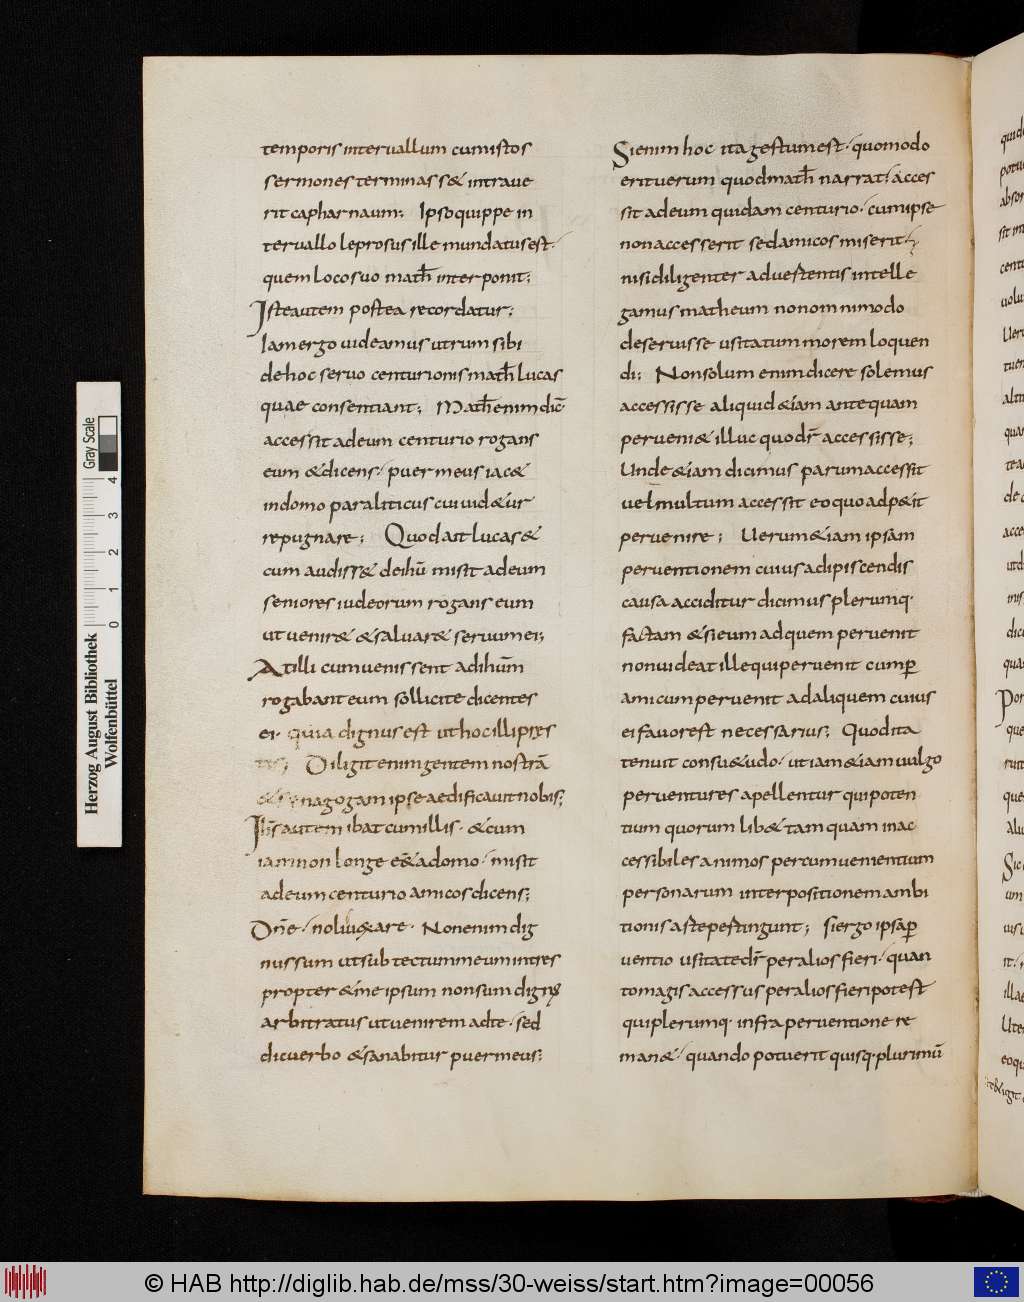 temporis intervallum cum istos
sermones terminass& intrave
rit capharnaum; Ipso quippe in
tervallo leprosus ille mundatus est·
quem loco suo math̅ interponit;
Iste autem postea recordatur;
Iam ergo videamus utrum sibi
de hoc servo centurionis math̅ lucas
quae consentiant; Math̅ enim dic̅
accessit ad eum centurio rogans
eum & dicens· puer meus iac&
in domo paraliticus cui vid&ur
repugnare; Quod ait lucas &
cum audiss& de ihu̅ misit ad eum
seniores iudeorum rogans eum
ut venir& & salvar& servum ei;
At illi cum venissent ad ihu̅m
rogabant eum sollicite dicentes
ei· quia dignus est ut hoc illi pres
tes; Diligit enim gentem nostra̅
& senagogam ipse aedificavit nobis;
Ih̅s autem ibat cum illis· & cum
iam non longe e&̅ a domo· misit
ad eum centurio amicos dicens;
Dn̅e· noli vexare· Non enim dig
nus sum ut sub tectum meum intres
propter & me ipsum non sum dignus
arbitratus ut venirem ad te· sed
dic verbo & sanabitur puer meus;
Si enim hoc ita gestum est· quomodo
erit verum quod math̅ narrat· acces
sit ad eum quidam centurio· cum ipse
non accesserit sed amicos miserit·
nisi diligenter advertentis intelle
gamus matheum non omnimodo
deseruisse usitatum morem loquen
di; Non solum enim dicere solemus
accessisse aliquid &iam antequam
perveni& illuc quo dr̅ accessisse;
Unde &iam dicimus parum accessit
vel multum accessit eo quo adp&it
pervenire; Verum &iam ipsam
perventionem cuius adipiscendi
causa acciditur dicimus plerumq·
factam & si eum ad quem pervenit
non videat ille qui pervenit cum p̅
amicum pervenit ad aliquem cuius
ei favor est necessarius; Quod ita
tenuit consu&udo· ut iam &iam vulgo
perventures apellentur qui poten
tum quorum lib& tamquam inac
cessibiles animos per cumvenientium
personarum interpositionem ambi
tionis arte pertingunt; Si ergo ipsa p̅
ventio usitate dr̅ per alios fieri· quan
to magis accessus per alios fieri potest
qui plerumq· infra perventione re
man&· quando potuerit quisq· plurimu̅
Herzog August Bibliothek
Wolfenbüttel
Gray Scale
0 1 2 3 4
© HAB http://diglib.hab.de/mss/30-weiss/start.htm?image=00056